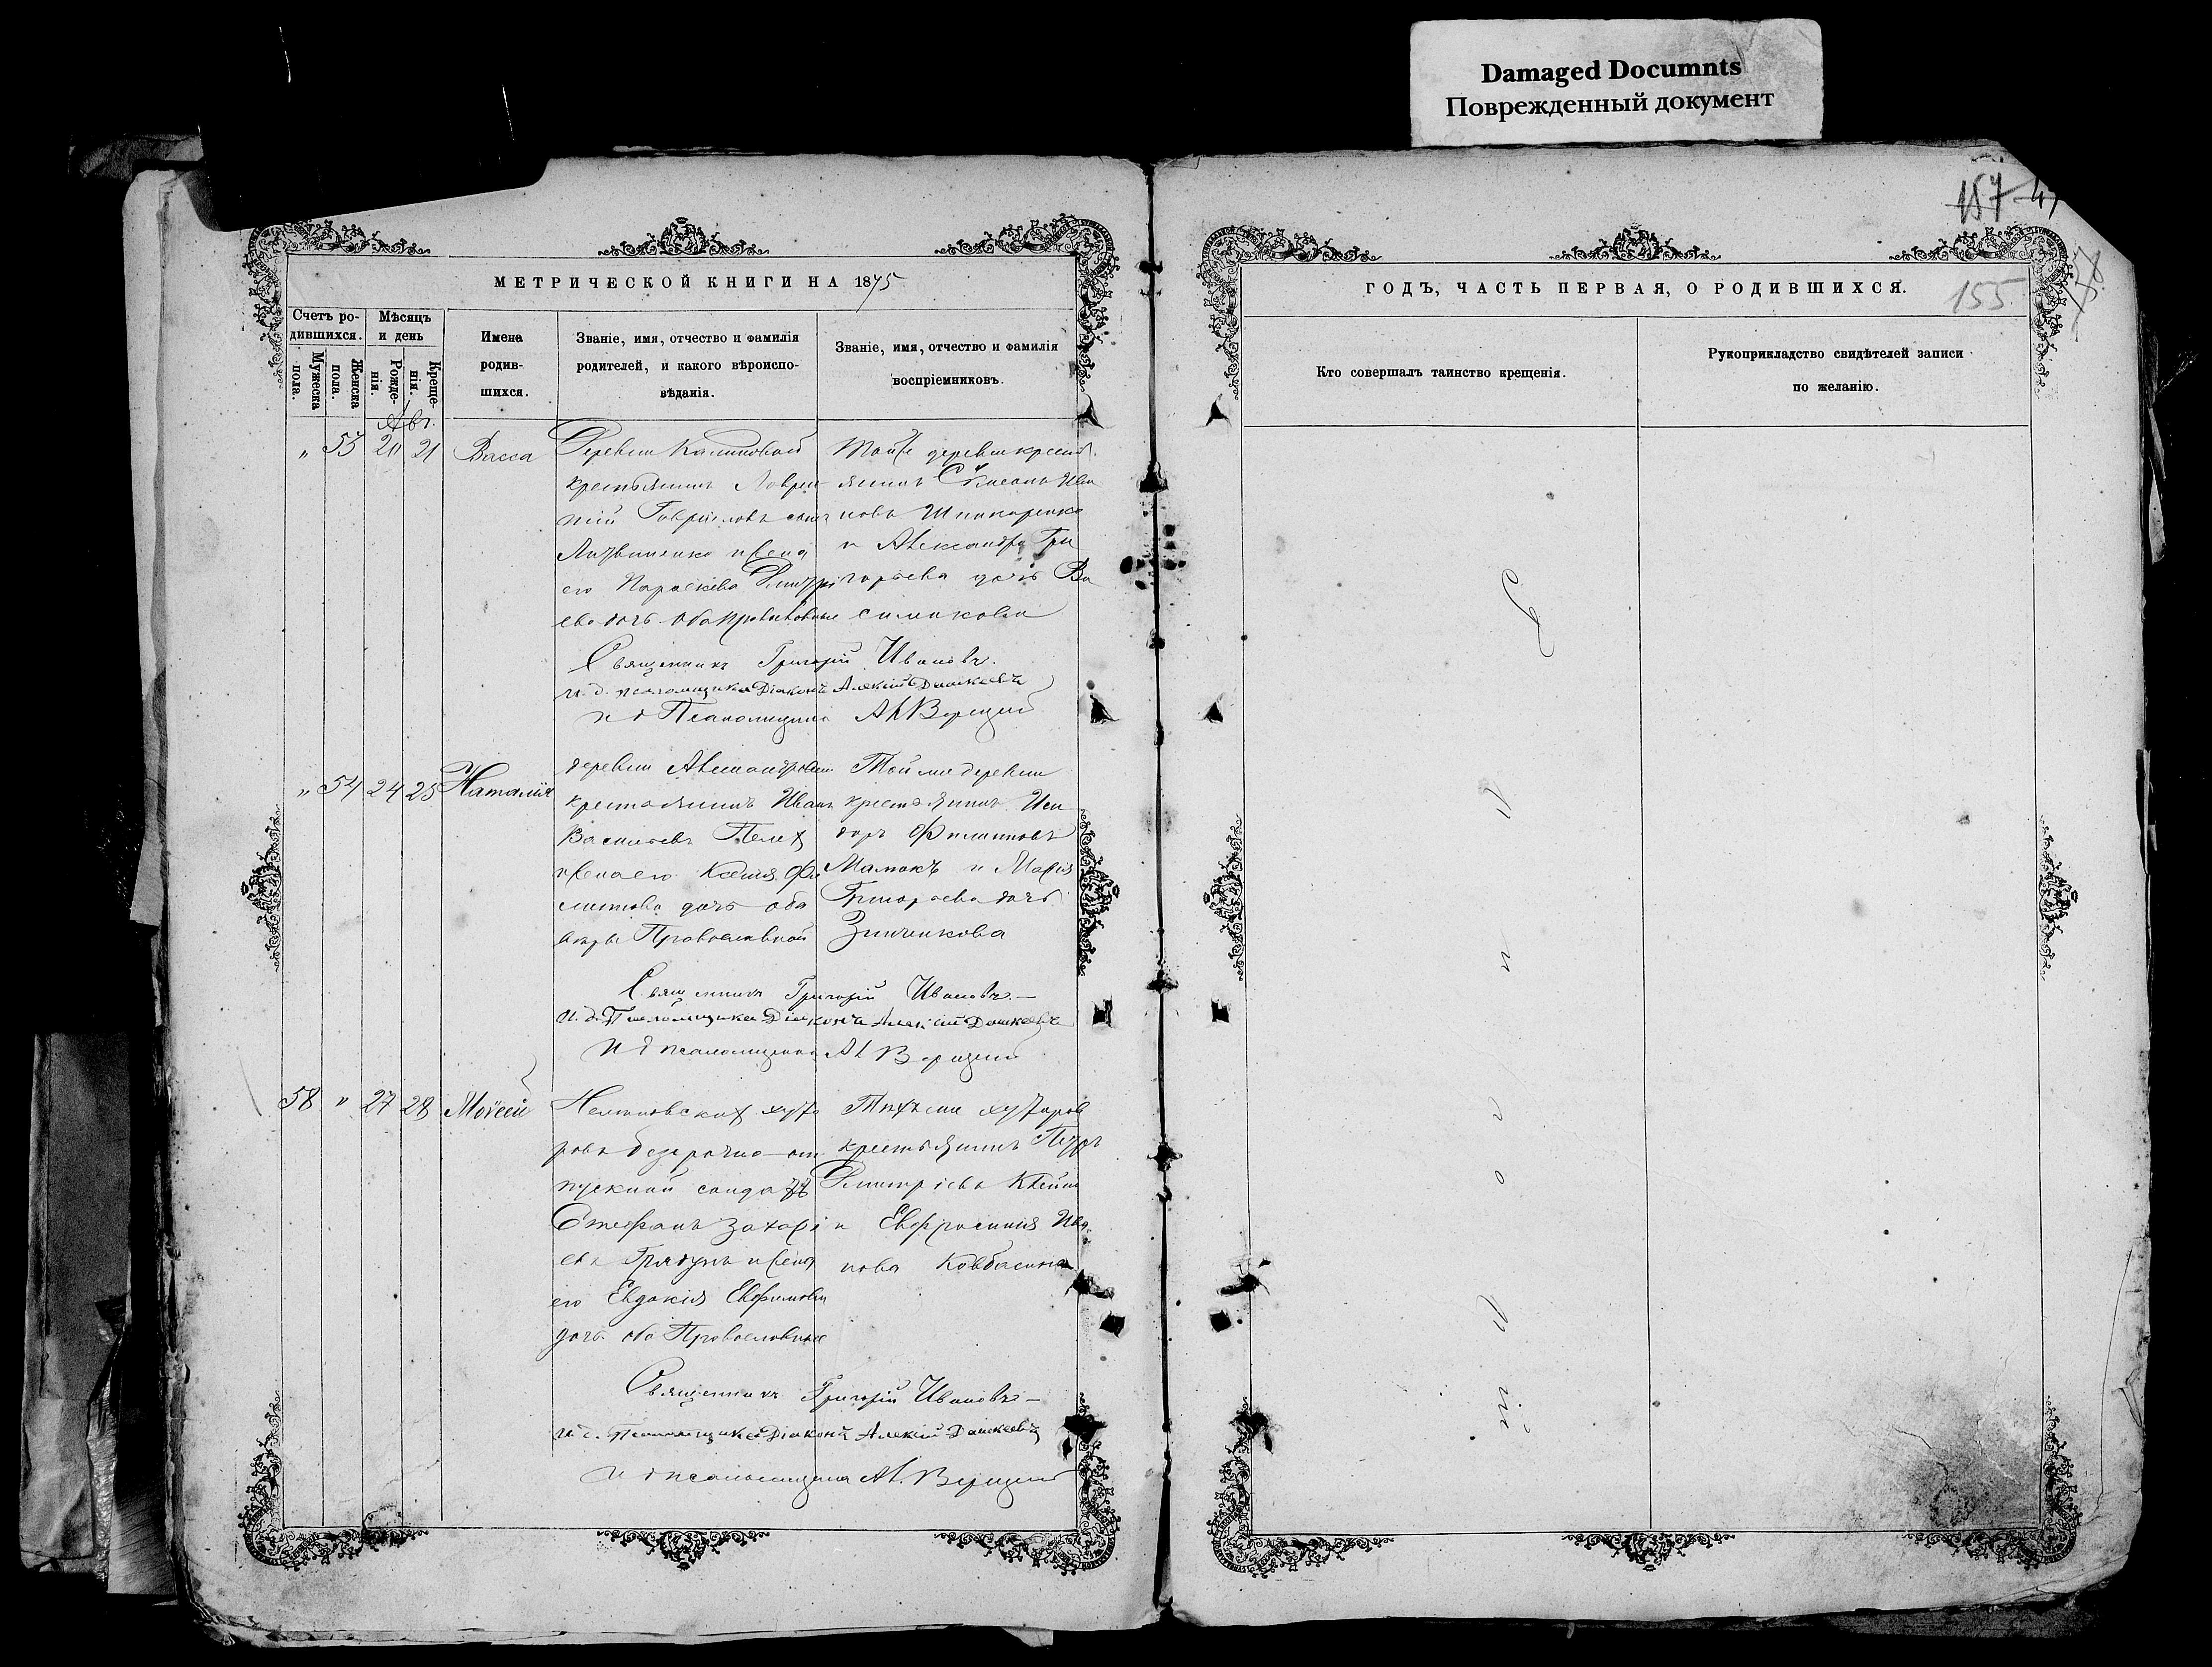 Damaged Documnts
Поврежденный документ
157
155
МЕТРИЧЕСКОЙ КНИГИ НА 1875
Счетъ ро-
дившихся.
Мужеска
пола.
Женска
пола.
Мѣсяцъ
и день
Рожде-
нія.
Креще-
нія.
Имена
родив-
шихся.
Званіе, имя, отчество и фамилія
родителей, и какого вѣроиспо-
вѣданія.
Званіе, имя, отчество и фамилія
воспріемниковъ.
Авг.
" 53 20 21 Васса
Деревни Калиновой
крестьянинъ Лаврен
тій Гавріиловъ сынъ
Литвиненко и жена
его Параскева Димитрі
ева дочь оба православные
Той же деревни крест
янинъ Ива
новъ
и Александра Гри
горьева дочь Ва
силькова
Священникъ Григорій Ивановъ.
И. д. псаломщика Діаконъ Алексій Дашкеевъ
И д Псаломщика Ал
" 54 24 25 Наталія
деревни Александровки
крестьянинъ Иванъ
Васильевъ Пелех
и жена его Ксенія Фи
липова дочь оба
вѣры Православной
Той же деревни
крестьянинъ Иси
доръ Филиповъ
Мамакъ и Марія
Григорьева дочь
Зинченкова
Священникъ Григорій Ивановъ. —
И. д. Псаломщика Діаконъ Алексій Дашкеевъ
И д псаломщика Ал
58 " 27 28 Моѵсей
хуто
ровъ безсрочно-от
пускной солдатъ
Стефанъ Захарі
евъ Грядунъ и жена
его Евдокія Евфимова
дочь оба Православные
Тѣхъ же хуторовъ
крестьянинъ Петръ
Димитріевъ
и Евфросинія Ива
нова Ковбасина
Священникъ Григорій Ивановъ —
И. д. Псаломщика Діаконъ Алексій Дашкеевъ
И д псаломщика Ал.
ГОДЪ, ЧАСТЬ ПЕРВАЯ, О РОДИВШИХСЯ.
Кто совершалъ таинство крещенія.
Рукоприкладство свидѣтелей записи
по желанію.